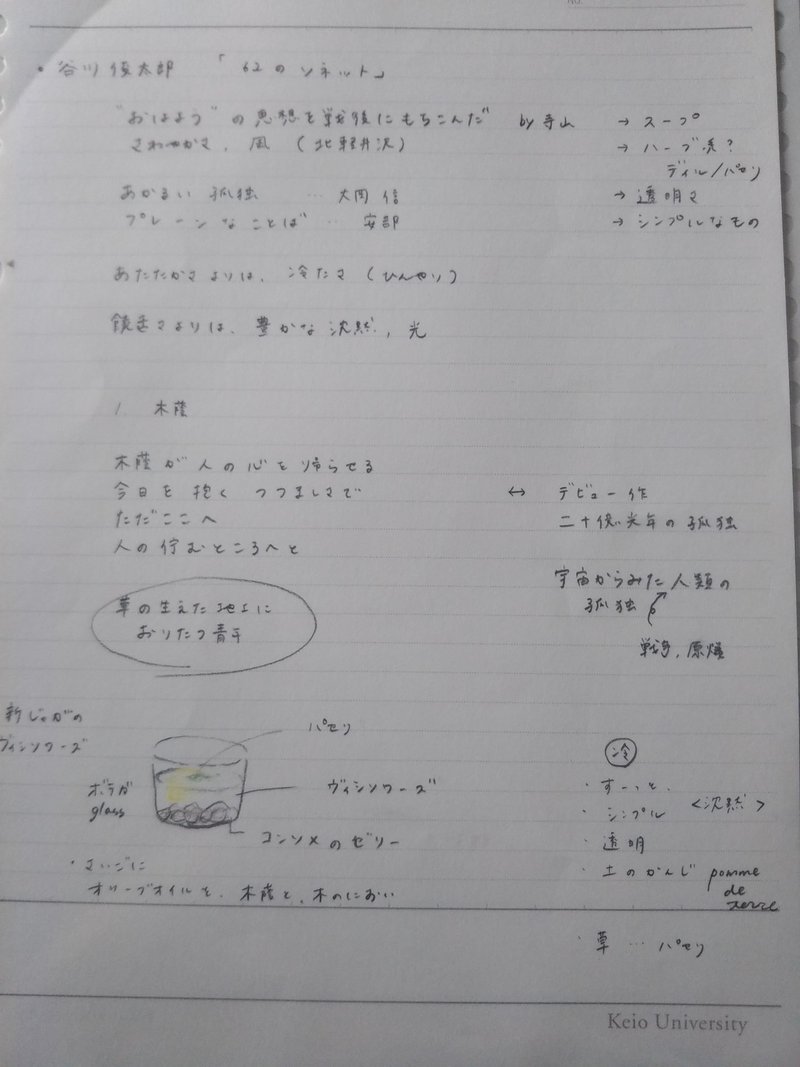 No.
・谷川俊太郎 「62のソネット」
"おはよう"の思想を戦後にもちこんだ by 寺山 → スープ
さわやかさ、風 (北軽井沢) → ハーブ系?
ディル/パセリ
あかるい孤独 … 大岡信 → 透明さ
プレーンなことば … 安部 → シンプルなもの
あたたかさよりは、冷たさ (ひんやり)
饒舌さよりは、豊かな沈黙、光
1. 木蔭
木蔭が人の心を帰らせる
今日を抱くつつましさで
ただここへ
人の佇むところへと
↔ デビュー作
二十億光年の孤独
宇宙からみた人類の
孤独
戦争、原爆
草の生えた地上に
おりたつ青年
新じゃがの
ヴィシソワーズ
ボデガ
glass
パセリ
ヴィシソワーズ
コンソメのゼリー
・さいごに
オリーブオイルを、木蔭と、木のにおい
冷
・すーっと、
・シンプル <沈黙>
・透明
・土のかんじ pomme
de
terre
・草 … パセリ
Keio University